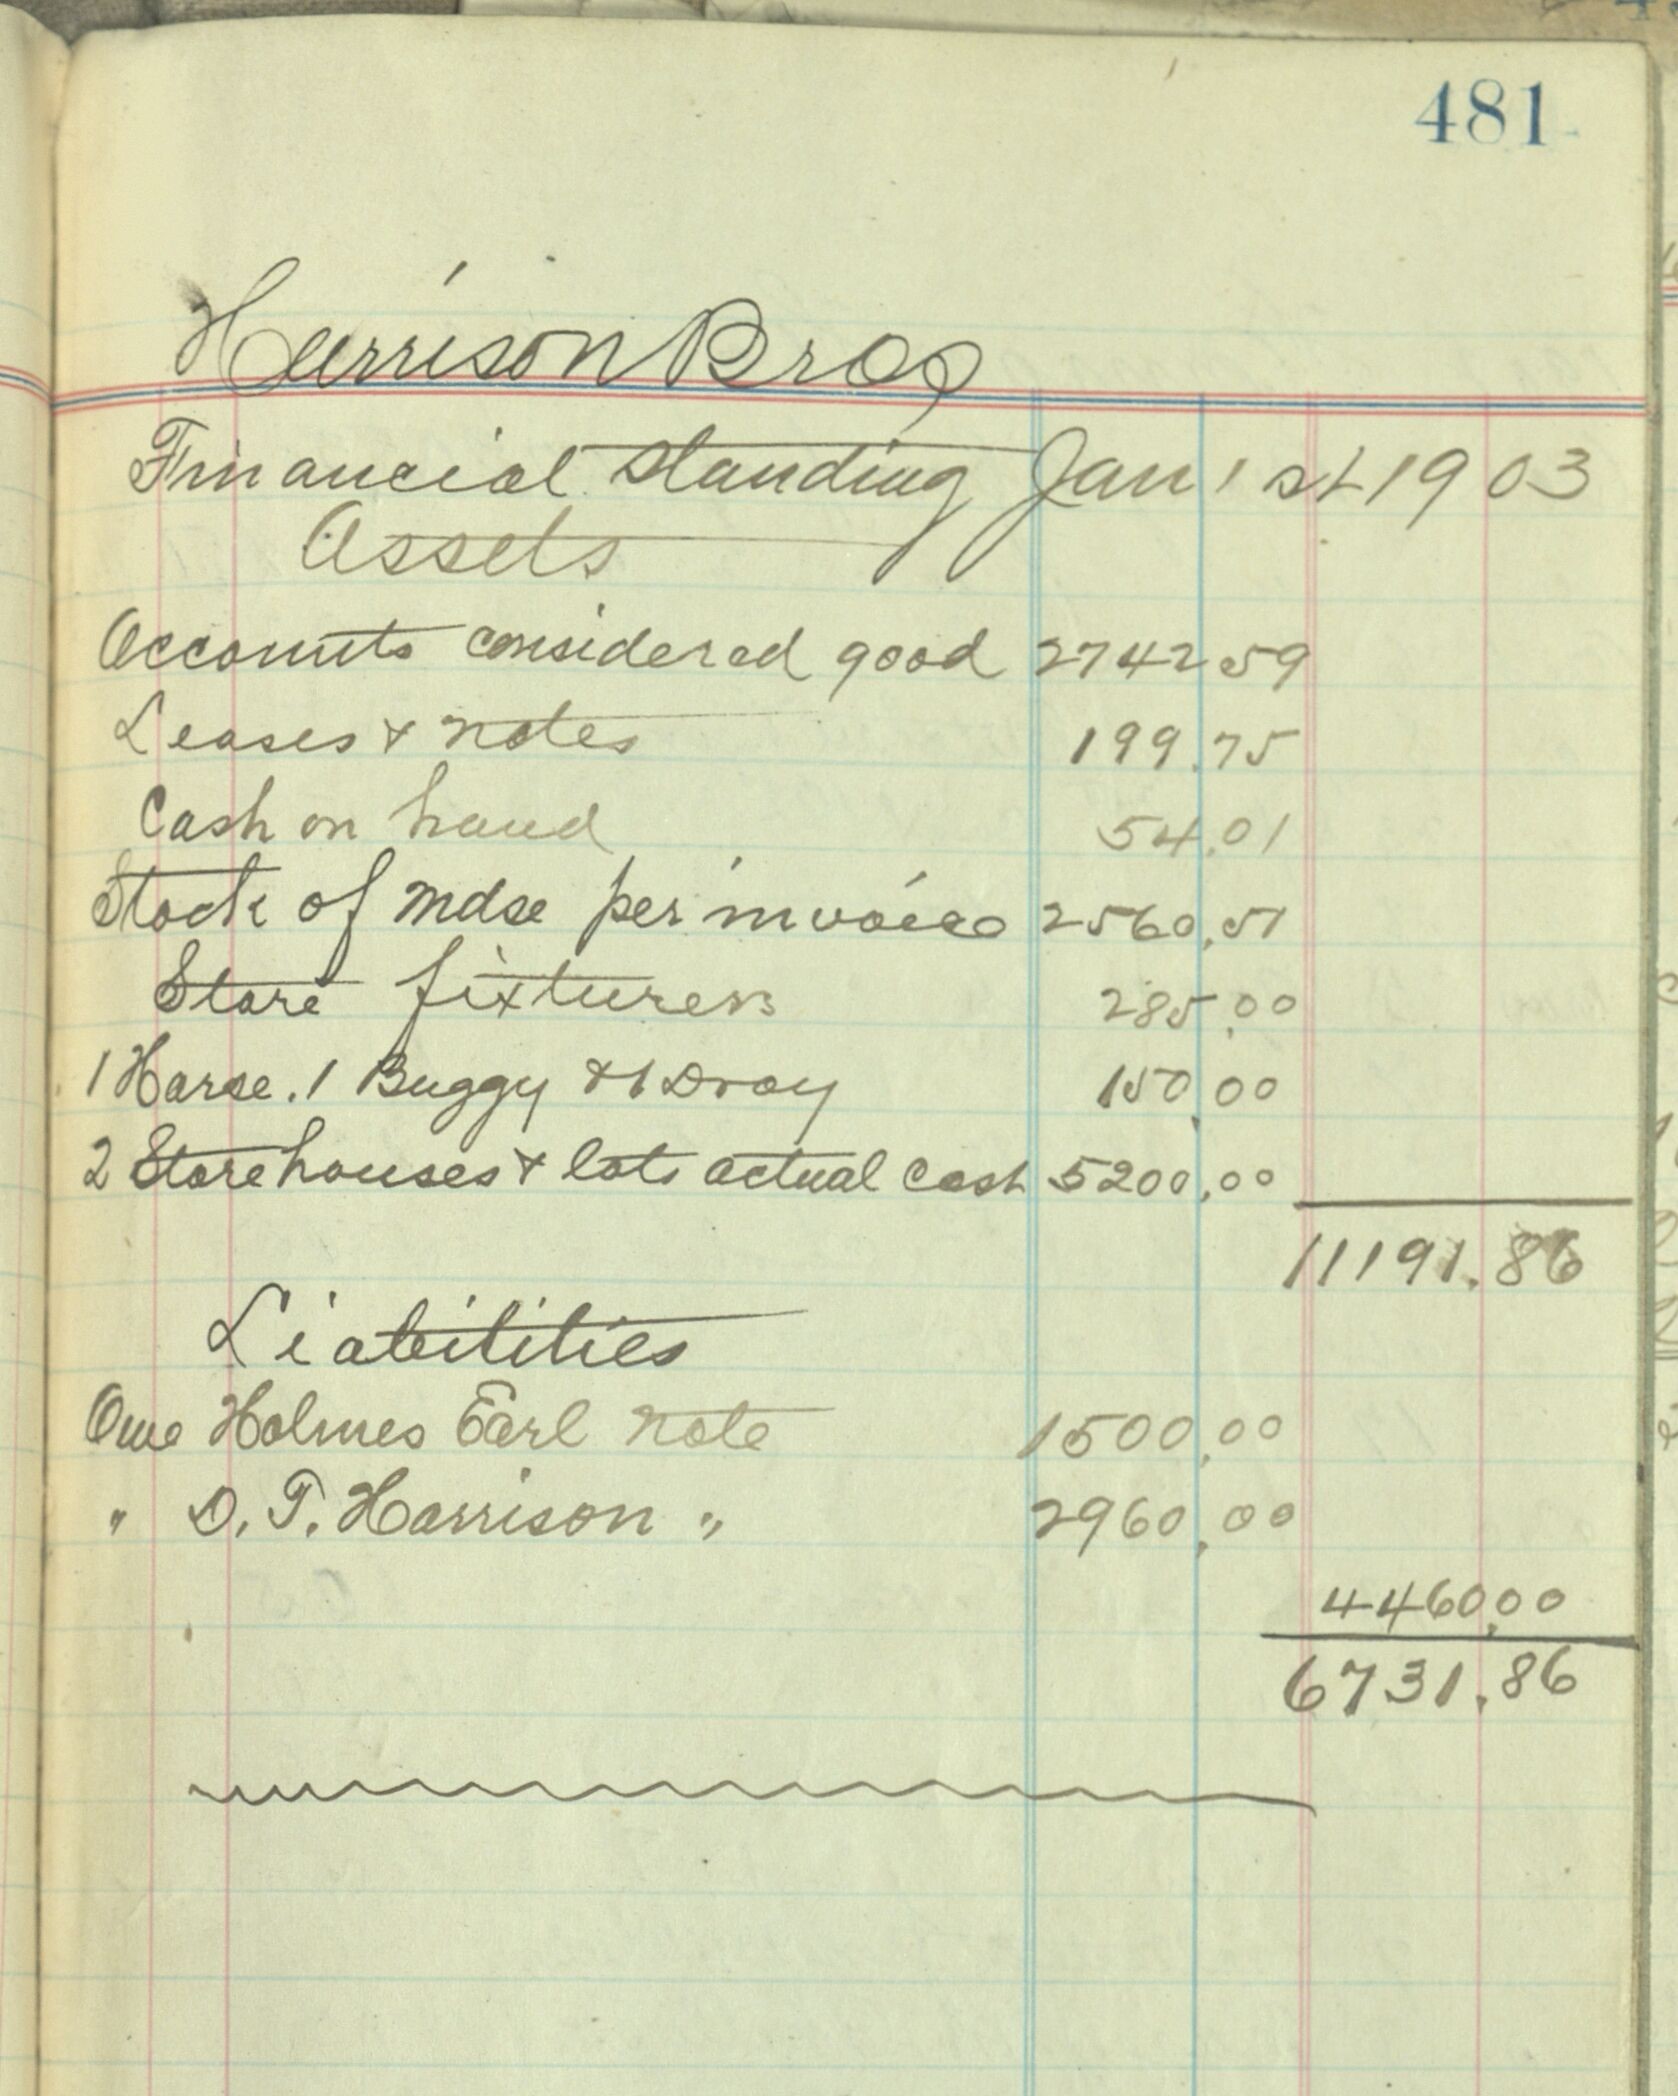 481
Harrison Bros
Financial standing Jan 1st 1903
Assets
Accounts considered good 2742 59
Leases & notes 199.75
Cash on hand 54.01
Stock of mdse per invoice 2560.51
Store fixtures 285.00
1 Horse. 1 Buggy & 1 Dray 150.00
2 Storehouses & lots actual cash 5200.00
11191.86
Liabilities
Owe Holmes Earl note 1500.00
" D. T. Harrison " 2960.00
4460.00
6731.86